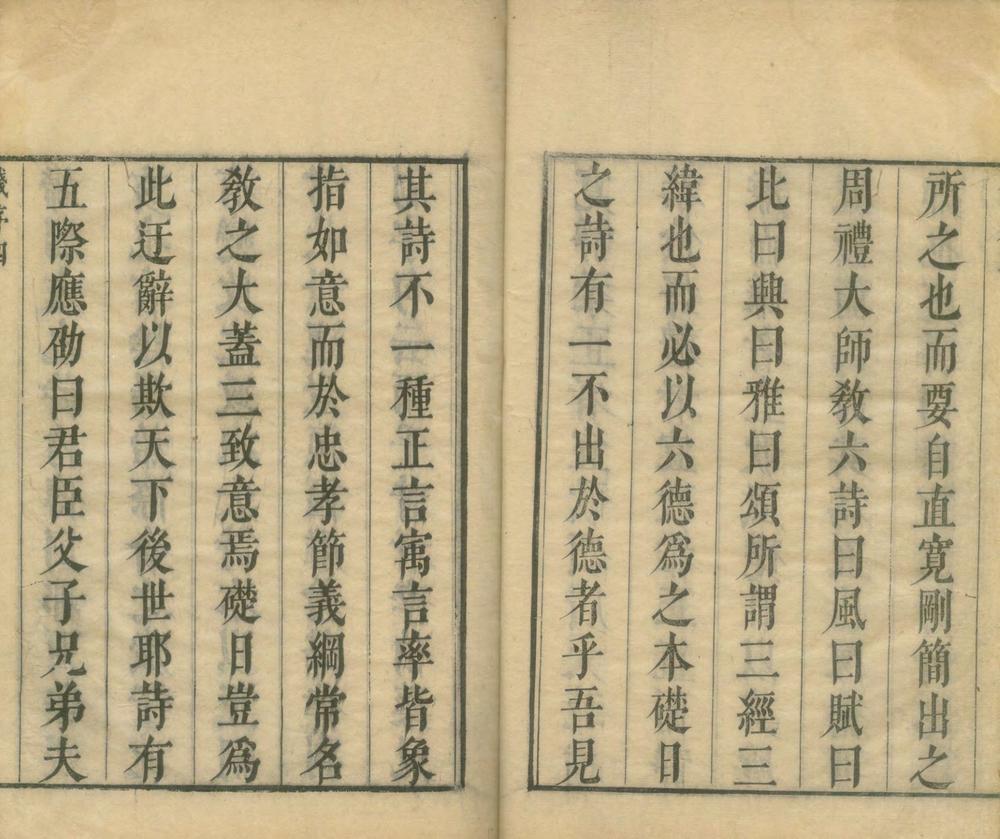 所之也而要自直寛剛簡出之
周禮大師教六詩曰風曰賦曰
比曰興曰雅曰頌所謂三經三
緯也而必以六德爲之本礎日
之詩有一不出於德者乎吾見
其詩不一種正言寓言率皆象
指如意而於忠孝節義綱常名
教之大蓋三致意焉礎日豈爲
此迂辭以欺天下後世耶詩有
五際應劭曰君臣父子兄弟夫